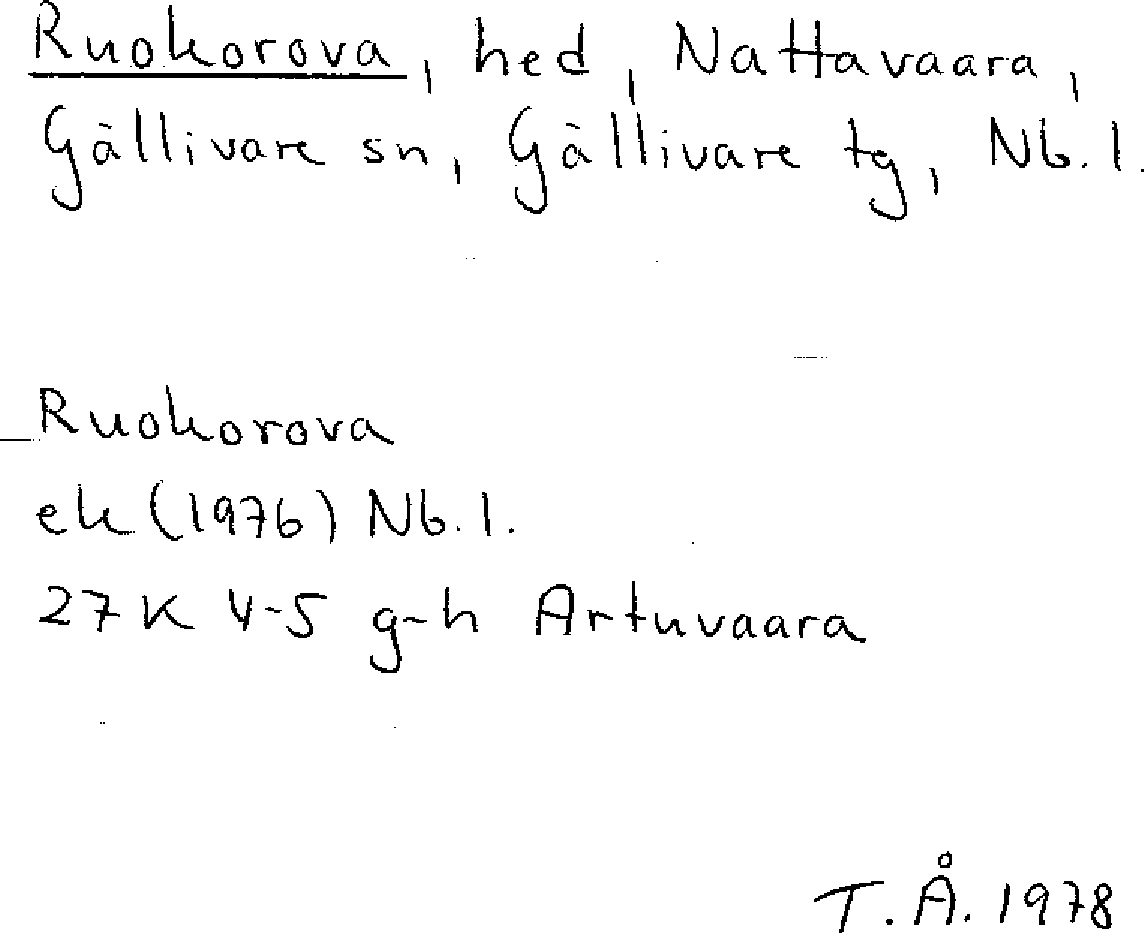 Ruokorova, hed, Nattavaara,
Gällivare sn, Gällivare tg, Nb. l.
Ruokorova
ek (1976) Nb. l.
27 K 4-5 g-h Artuvaara
T. Å. 1978